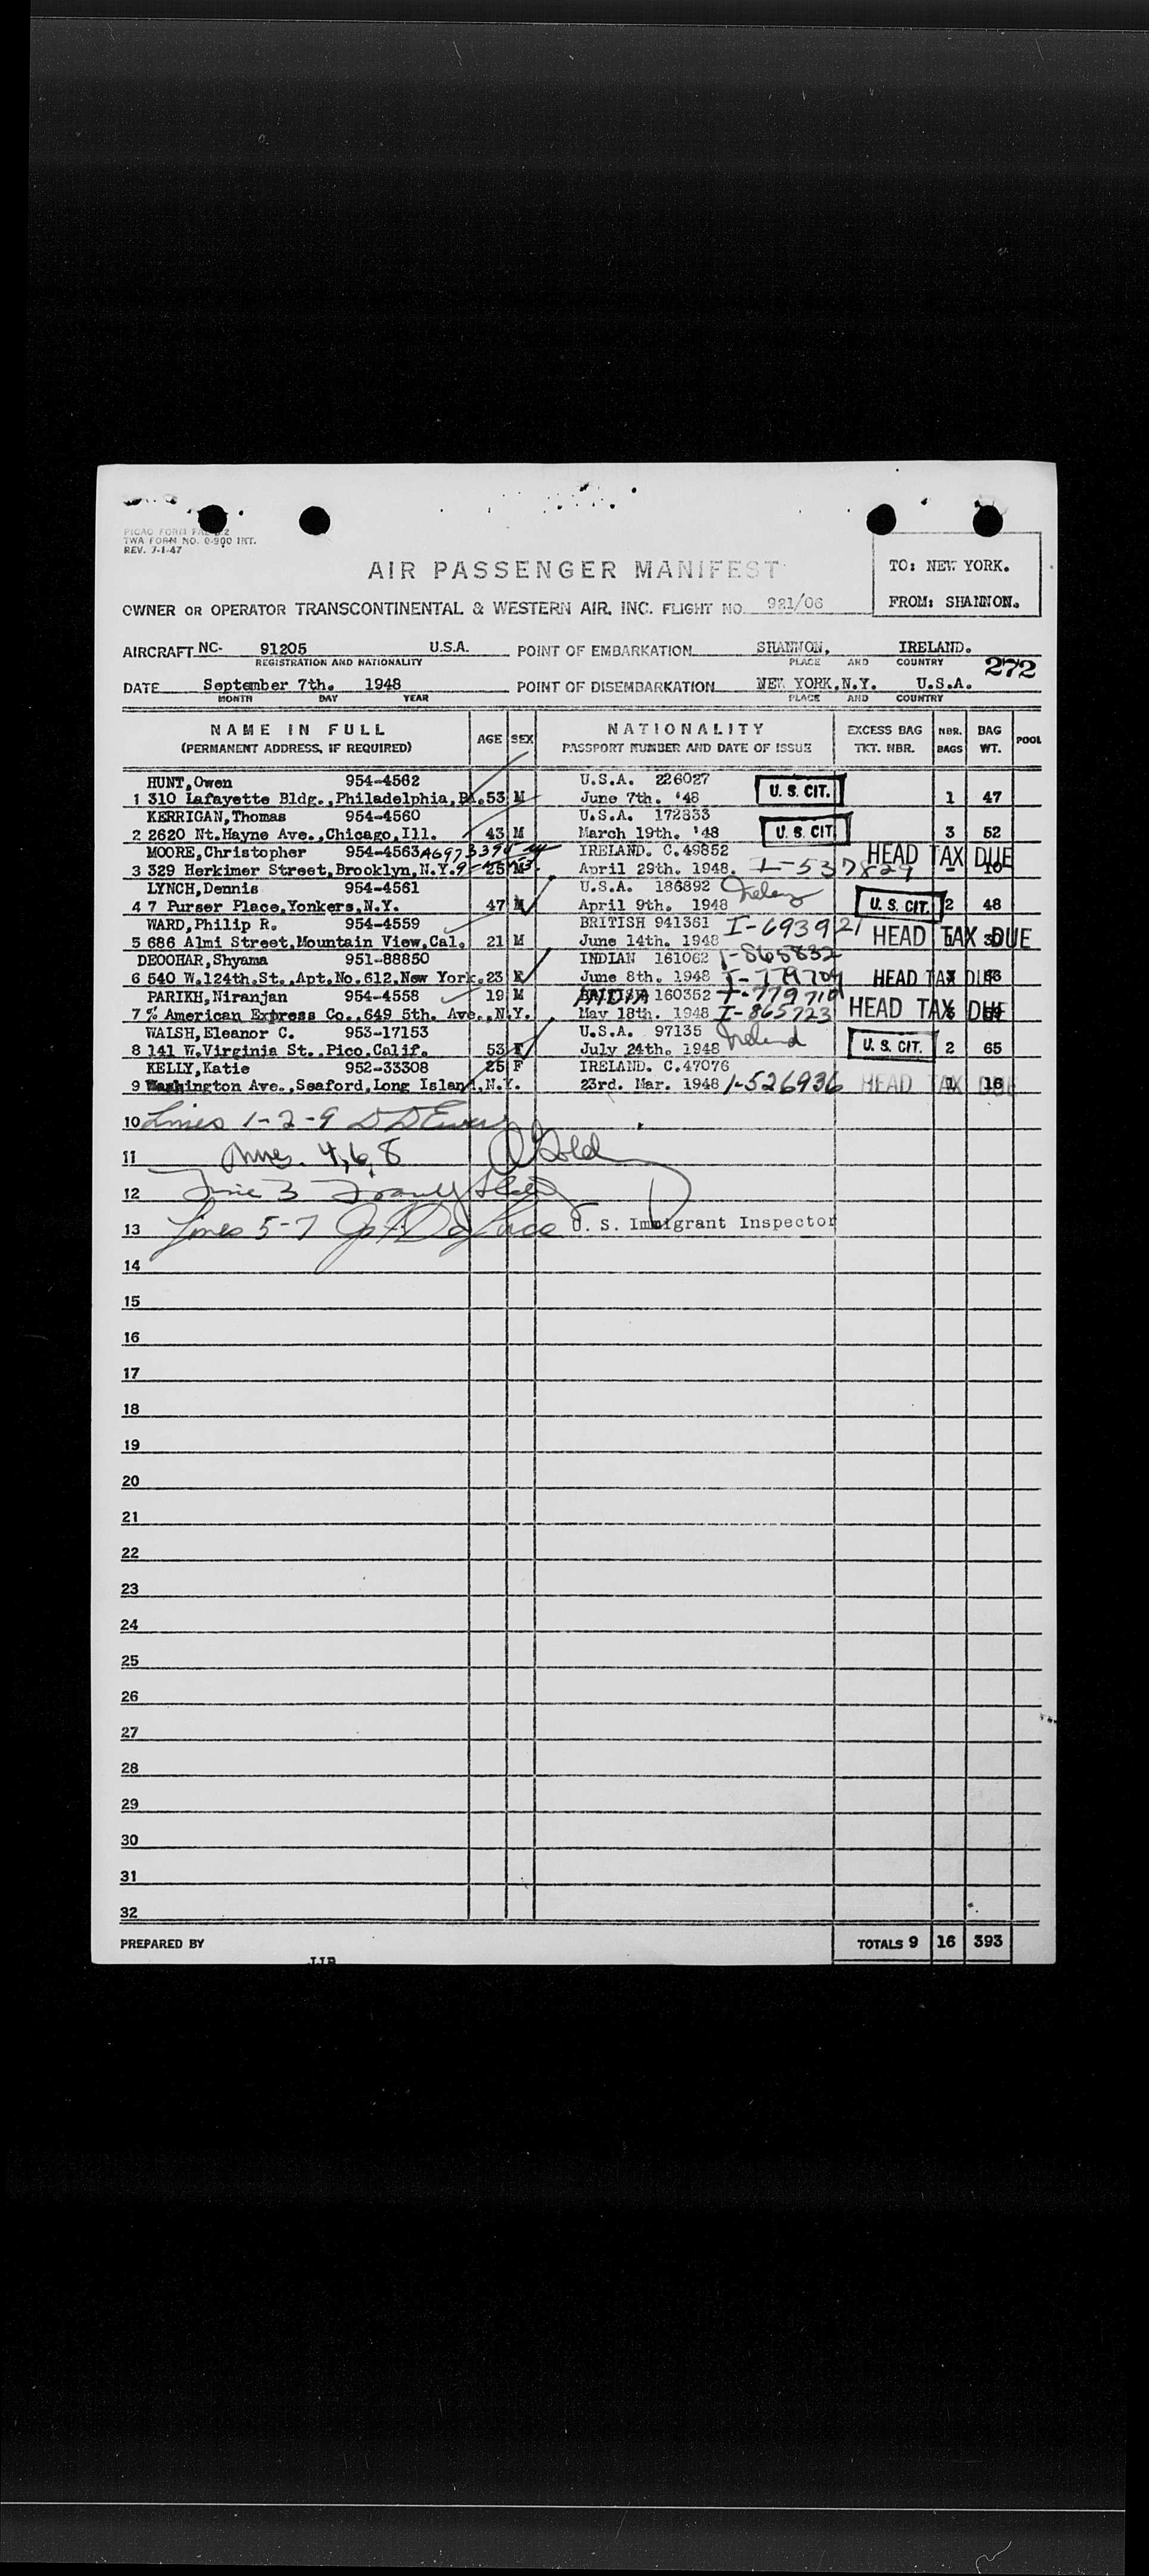 PICAO FORM
TWA FORM NO. 0-900 INT.
REV. 7-1-47
AIR PASSENGER MANIFEST
TO: NEW YORK.
FROM: SHANNON.
OWNER OR OPERATOR TRANSCONTINENTAL & WESTERN AIR, INC. FLIGHT NO. 921/06
AIRCRAFT NC- 91205 U.S.A. POINT OF EMBARKATION SHANNON, IRELAND.
REGISTRATION AND NATIONALITY PLACE AND COUNTRY
272
DATE September 7th. 1948 POINT OF DISEMBARKATION NEW YORK,N.Y. U.S.A.
MONTH DAY YEAR PLACE AND COUNTRY
NAME IN FULL AGE SEX NATIONALITY EXCESS BAG NBR. BAG POOL
(PERMANENT ADDRESS, IF REQUIRED) PASSPORT NUMBER AND DATE OF ISSUE TKT. NBR. BAGS WT.
HUNT,Owen 954-4562 U.S.A. 226027
1 310 Lafayette Bldg.,Philadelphia,PA. 53 M June 7th. '48 U. S. CIT. 1 47
KERRIGAN,Thomas 954-4560 U.S.A. 172833
2 2620 Nt.Hayne Ave.,Chicago,Ill. 43 M March 19th. '48 U. S. CIT 3 52
MOORE,Christopher 954-4563 IRELAND. C.49852 HEAD TAX DUE
3 329 Herkimer Street,Brooklyn,N.Y. 25 M April 29th. 1948. I-537829 - 10
LYNCH,Dennis 954-4561 U.S.A. 186892
4 7 Purser Place,Yonkers,N.Y. 47 M April 9th. 1948 U. S. CIT. 2 48
WARD,Philip R. 954-4559 BRITISH 941361 I-693921
5 686 Almi Street,Mountain View,Cal. 21 M June 14th. 1948 HEAD TAX DUE
DEOOHAR,Shyama 951-88850 INDIAN 161062 I-865832
6 540 W.124th.St.,Apt.No.612,New York. 23 F June 8th. 1948 I-779709 HEAD TAX DUE
PARIKH,Niranjan 954-4558 19 M INDIA 160352 I-779710
7 % American Express Co.,649 5th. Ave.,N.Y. May 18th. 1948 I-865723 HEAD TAX DUE
WALSH,Eleanor C. 953-17153 U.S.A. 97135 Ireland
8 141 W.Virginia St.,Pico,Calif. 53 F July 24th. 1948 U. S. CIT. 2 65
KELLY,Katie 952-33308 25 F IRELAND. C.47076
9 Washington Ave.,Seaford,Long Island,N.Y. 23rd. Mar. 1948 1-526936 HEAD TAX DUE 1 16
10 Lines 1-2-9
11 Lines. 4,6,8
12 Line 3
13 Lines 5-7 U. S. Immigrant Inspector
14
15
16
17
18
19
20
21
22
23
24
25
26
27
28
29
30
31
32
PREPARED BY TOTALS 9 16 393